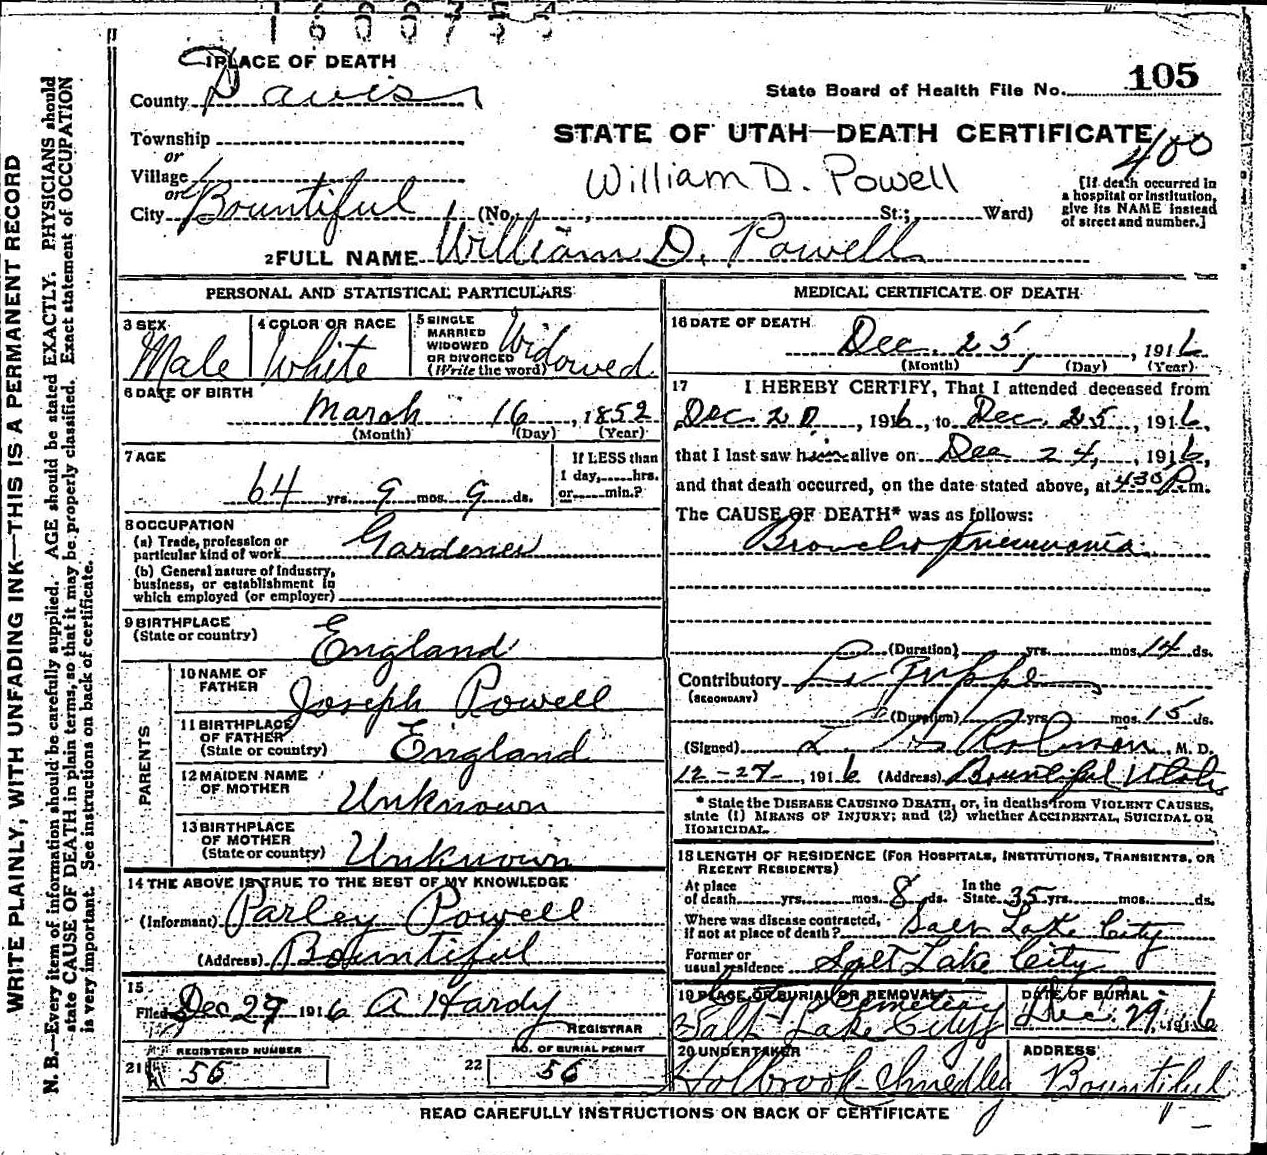 160073
1 PLACE OF DEATH
County Davis
State Board of Health File No. 105
Township
STATE OF UTAH—DEATH CERTIFICATE
400
or
Village
William D. Powell
or
City Bountiful (No. , St.; Ward)
[If death occurred in
a hospital or institution,
give its NAME instead
of street and number.]
2 FULL NAME William D. Powell
PERSONAL AND STATISTICAL PARTICULARS
3 SEX Male
4 COLOR OR RACE White
5 SINGLE
MARRIED
WIDOWED
OR DIVORCED
(Write the word) Widowed
6 DATE OF BIRTH
March 16, 1852
(Month) (Day) (Year)
7 AGE
64 yrs. 9 mos. 9 ds.
If LESS than
1 day, hrs.
or min.?
8 OCCUPATION
(a) Trade, profession or
particular kind of work Gardener
(b) General nature of Industry,
business, or establishment in
which employed (or employer)
9 BIRTHPLACE
(State or country) England
PARENTS
10 NAME OF
FATHER Joseph Powell
11 BIRTHPLACE
OF FATHER
(State or country) England
12 MAIDEN NAME
OF MOTHER Unknown
13 BIRTHPLACE
OF MOTHER
(State or country) Unknown
14 THE ABOVE IS TRUE TO THE BEST OF MY KNOWLEDGE
(Informant) Parley Powell
(Address) Bountiful
15
Filed Dec 29 1916 A Hardy
REGISTRAR
21 REGISTERED NUMBER
56
22 NO. OF BURIAL PERMIT
56
MEDICAL CERTIFICATE OF DEATH
16 DATE OF DEATH
Dec. 25, 1916
(Month) (Day) (Year)
17 I HEREBY CERTIFY, That I attended deceased from
Dec. 20, 1916, to Dec. 25, 1916,
that I last saw him alive on Dec 24, 1916,
and that death occurred, on the date stated above, at 430 P.m.
The CAUSE OF DEATH* was as follows:
Broncho pneumonia
(Duration) yrs. mos. 14 ds.
Contributory La Grippe
(SECONDARY)
(Duration) yrs. mos. 15 ds.
(Signed) M. D.
12-27-, 1916 (Address) Bountiful Utah
* State the DISEASE CAUSING DEATH, or, in deaths from VIOLENT CAUSES,
state (1) MEANS OF INJURY; and (2) whether ACCIDENTAL, SUICIDAL OR
HOMICIDAL.
18 LENGTH OF RESIDENCE (FOR HOSPITALS, INSTITUTIONS, TRANSIENTS, OR
RECENT RESIDENTS)
At place
of death yrs. mos. 8 ds. In the
State 35 yrs. mos. ds.
Where was disease contracted,
if not at place of death? Salt Lake City
Former or
usual residence Salt Lake City
19 PLACE OF BURIAL OR REMOVAL
City Cemetery
Salt Lake City
DATE OF BURIAL
Dec. 29, 1916
20 UNDERTAKER
Holbrook-Smedley
ADDRESS
Bountiful
READ CAREFULLY INSTRUCTIONS ON BACK OF CERTIFICATE
WRITE PLAINLY, WITH UNFADING INK—THIS IS A PERMANENT RECORD
N. B.—Every item of information should be carefully supplied. AGE should be stated EXACTLY. PHYSICIANS should
state CAUSE OF DEATH in plain terms, so that it may be properly classified. Exact statement of OCCUPATION
is very important. See instructions on back of certificate.